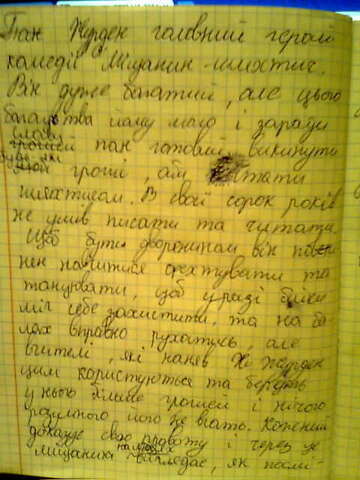 Пан Журден головний герой
комедії Міщанин-шляхтич.
Він дуже багатий, але цього
багатства йому мало і заради
слави
пан готовий викинути
будь які
гроші, аби стати
шляхтичом. В свої сорок років
не умів писати та читати
Щоб бути дворянином він пови-
нен навчитися фехтувати та
танцювати, щоб у разі бійки
міг себе захистити, та на ба-
лах вправно рухатись, але
вчителі, які наняв Журден
цим користуються та беруть
у нього грошей і нічого
розумного його не вчать. Кожний
доказує свою правоту і через це
міщанин виглядає, як посмі-